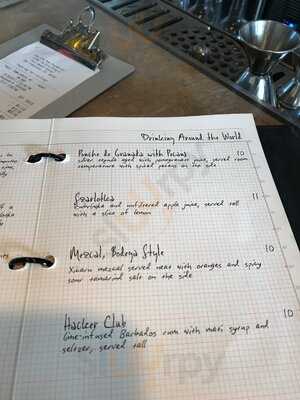 Drinking Around the World
Ponche de Granada with Pecans 10
silver tequila aged with pomegranate juice, served room
temperature with spiced pecans on the side
Szarlotka 11
Żubrówka and unfiltered apple juice, served tall
with a slice of lemon
Mezcal, Bodega Style 10
Xiaru mezcal served neat with oranges and spicy
sour tamarind salt on the side
Hacker Club 10
lime-infused Barbados rum with mati syrup and
seltzer, served tall